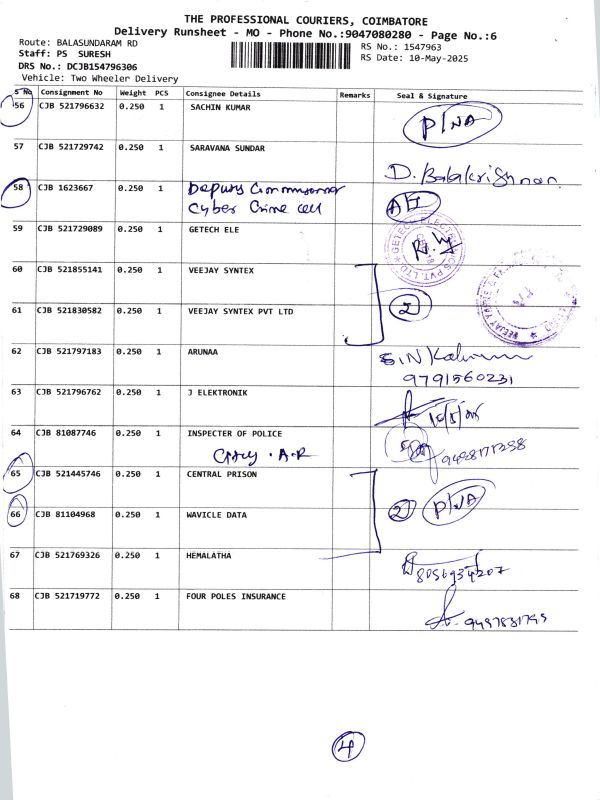 THE PROFESSIONAL COURIERS, COIMBATORE
Delivery Runsheet - MO - Phone No.:9047080280 - Page No.:6
Route: BALASUNDARAM RD
RS No.: 1547963
Staff: PS SURESH
RS Date: 10-May-2025
DRS No.: DCJB154796306
Vehicle: Two Wheeler Delivery
S No Consignment No Weight PCS Consignee Details Remarks Seal & Signature
56 CJB 521796632 0.250 1 SACHIN KUMAR P/NA
57 CJB 521729742 0.250 1 SARAVANA SUNDAR D. Balakrishnan.
58 CJB 1623667 0.250 1 Deputy Commissioner
Cyber Crime cell
59 CJB 521729089 0.250 1 GETECH ELE
60 CJB 521855141 0.250 1 VEEJAY SYNTEX
61 CJB 521830582 0.250 1 VEEJAY SYNTEX PVT LTD 2
62 CJB 521797183 0.250 1 ARUNAA
9791560231
63 CJB 521796762 0.250 1 J ELEKTRONIK
64 CJB 81087746 0.250 1 INSPECTER OF POLICE
65 CJB 521445746 0.250 1 CENTRAL PRISON
66 CJB 81104968 0.250 1 WAVICLE DATA 2 P/NA
67 CJB 521769326 0.250 1 HEMALATHA
68 CJB 521719772 0.250 1 FOUR POLES INSURANCE
4